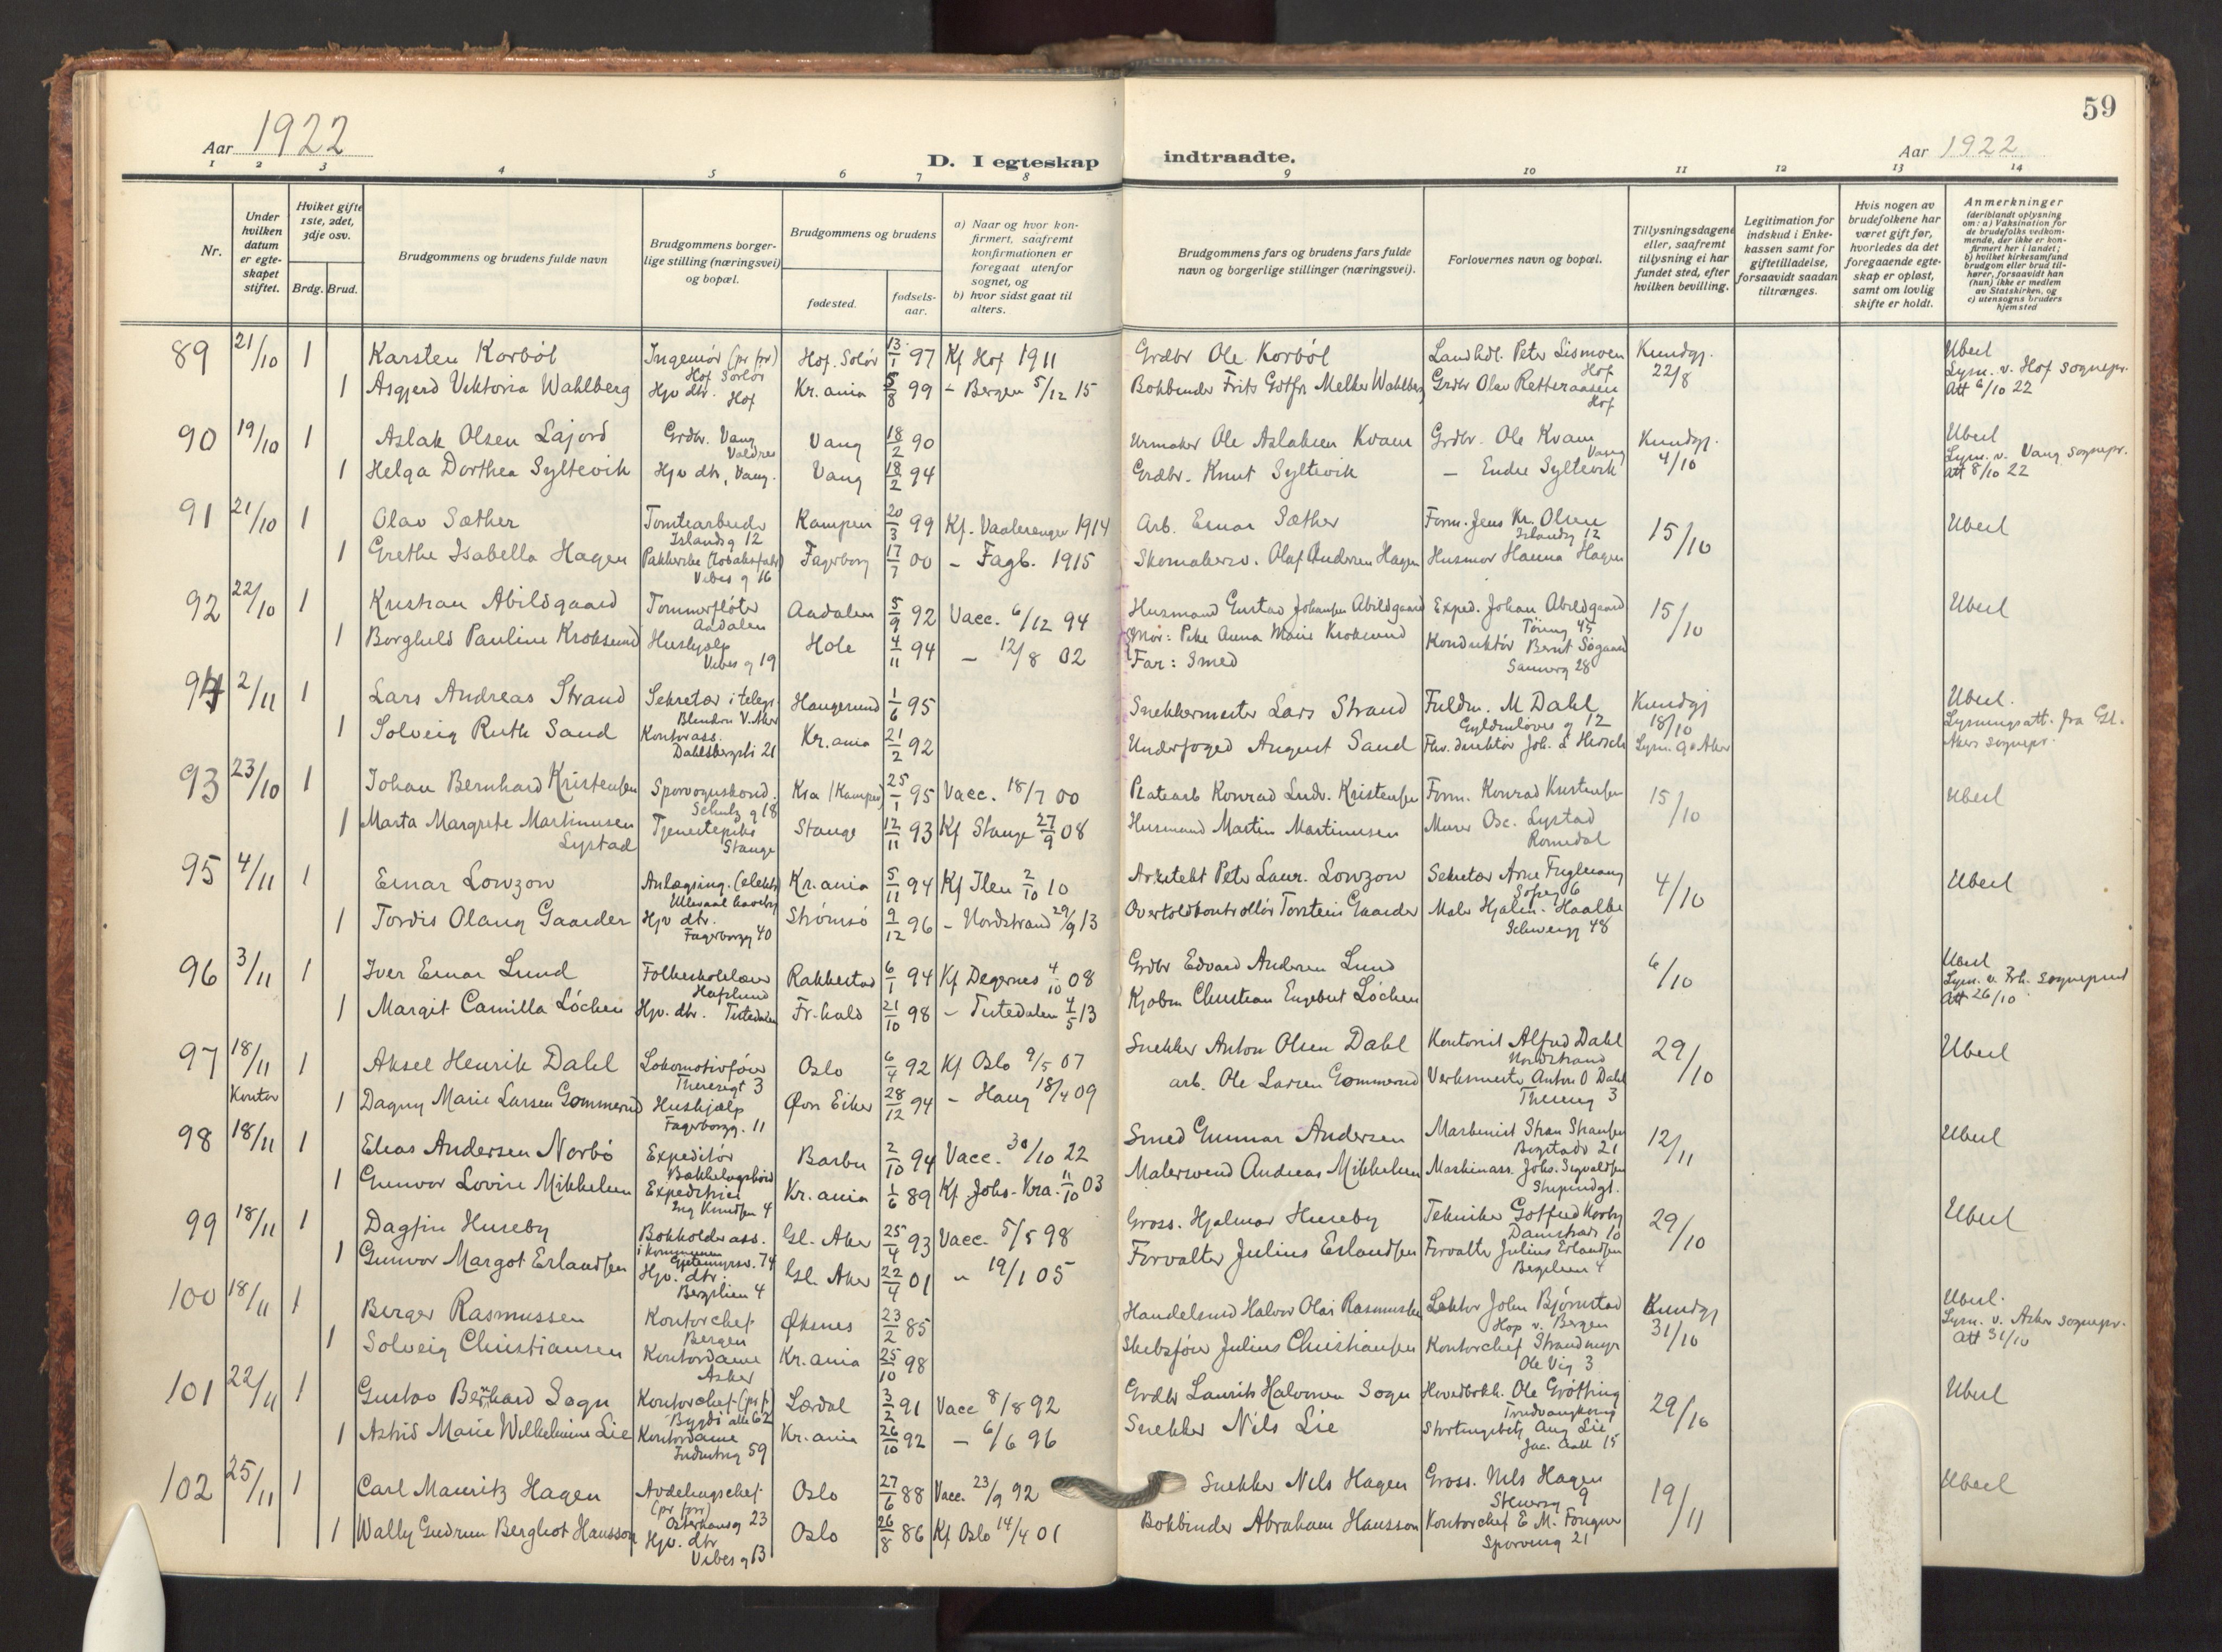 59
Aar 1922
D. I egteskap indtraadte.
Aar 1922
1 2 3 4 5 6 7 8 9 10 11 12 13 14
Nr.
Under hvilken datum er egteskapet stiftet.
Hviket gifte 1ste, 2det, 3dje osv.
Brdg. Brud.
Brudgommens og brudens fulde navn
Brudgommens borgerlige stilling (næringsvei) og bopæl.
Brudgommens og brudens
fødested.
fødselsaar.
a) Naar og hvor konfirmert, saafremt konfirmationen er foregaat utenfor sognet, og
b) hvor sidst gaat til alters.
Brudgommens fars og brudens fars fulde navn og borgerlige stillinger (næringsvei).
Forlovernes navn og bopæl.
Tillysningsdagene eller, saafremt tillysning ei har fundet sted, efter hvilken bevilling.
Legitimation for indskud i Enkekassen samt for giftetilladelse, forsaavidt saadan tiltrænges.
Hvis nogen av brudefolkene har været gift før, hvorledes da det foregaaende egteskap er opløst, samt om lovlig skifte er holdt.
Anmerkninger
(deriblandt oplysning om: a) Vaksination for de brudefolks vedkommende, der ikke er konfirmert her i landet; b) hvilket kirkesamfund brudgom eller brud tilhører, forsaavidt han (hun) ikke er medlem av Statskirken, og c) utensogns bruders hjemsted
89 21/10 1 Karsten Korbøl Ingeniør (pr fr) Hof Solør Hof. Solør 13/1 97 Kf Hof 1911 Grdbr Ole Korbøl Landhdl. Peter Lismoen Hof Kundgj. 22/8 Ubesl Lysn. v. Hof sognepr. Att 6/10 22
1 Asgjerd Viktoria Wahlberg Hjv dtr. Hof Kr.ania 5/8 99 - Bergen 5/12 15 Bokbinder Frits Gotfr Melker Wahlberg Grdbr Olav Retteraasen Hof
90 19/10 1 Aslak Olsen Lajord Grdbr. Vang Valdres Vang 18/2 90 Urmaker Ole Aslaksen Kvam Grdbr. Ole Kvam Vang Kundgj. 4/10 Ubesl Lysn. v. Vang sognepr. att 8/10 22
1 Helga Dorthea Syltevik Hjv dtr, Vang. Vang 18/2 94 Grdbr. Knut Syltevik - Endre Syltevik
91 21/10 1 Olav Sæther Tomtearbeider Islandsg 12 Kampen 20/3 99 Kf. Vaalerengen 1914 Arb. Einar Sæther Form. Jens Kr. Olsen Islandsg 12 15/10 Ubesl
1 Grethe Isabella Hagen Pakkerske (tobaksfabr) Vibes g 16 Fagerborg 17/7 00 - Fagb. 1915 Skomakersv. Olaf Andersen Hagen Husmor Hanna Hagen
92 22/10 1 Kristian Abildgaard Tømmerfløter Aadalen Aadalen 5/9 92 Vacc. 6/12 94 Husmand Gustav Johansen Abildgaard Exped. Johan Abildgaard 45 15/10 Ubesl
1 Borghild Pauline Kroksund Hushjælp Vibes g 19 Hole 4/11 94 - 12/8 02 Mor: Pike Anna Marie Kroksund Far: Smed Konduktør Bernt Søgaard 28
94 2/11 1 Lars Andreas Strand Sekretær i telegr Blindern V. Aker Haugesund 1/6 95 Snekkermester Lars Strand Fuldm. M Dahl Gyldenløves g 12 Kundgj 18/10 Ubesl. Lysningsatt. fra Gl. Akers sognepr.
1 Solveig Ruth Sand Kontorass. Dahlsbergsti 21 Kr.ania 21/2 92 Underfoged August Sand
93 23/10 1 Johan Bernhard Kristensen Sporvognskond. Schultz g 18 Kra (Kampen) 25/1 95 Vacc. 18/7 00 Platearb Konrad Ludv. Kristensen Form. Konrad Kristensen 15/10 Ubesl
1 Marta Margrete Martinusen Lystad Tjenestepike Stange Stange 12/11 93 Kf Stange 27/9 08 Husmand Martin Martinusen Murer Osc. Lystad Romedal
95 4/11 1 Einar Lowzon Anlægsing. (elektr) Ullevaal haveby Kr.ania 5/11 94 Kf Ilen 2/10 10 Arkitekt Peter Laur. Lowzon Sekretær Arne Fuglesang Sofieg 6 4/10 Ubesl
1 Tordis Olaug Gaarder Hjv dtr. Fagerborgg 40 Strømsø 9/12 96 - Nordstrand 29/9 13 Overtoldkontrollør Torstein Gaarder Maler Hjalm. Haalke Schweigg 48
96 3/11 1 Iver Einar Lund Folkeskolelærer Hafslund Rakkestad 6/1 94 Kf Degernes 4/10 08 Grdbr Edvard Andersen Lund 6/10 Ubesl Lysn. v. Frh. sogneprest Att 26/10
1 Margit Camilla Løchen Hjv. dtr. Tistedalen Fr.hald 21/10 98 - Tistedalen 4/5 13 Kjøbm Christian Engebret Løchen
97 18/11 Kontor 1 Aksel Henrik Dahl Lokomotivfører Theresegt 3 Oslo 6/4 92 Kf Oslo 9/5 07 Snekker Anton Olsen Dahl Kontorist Alfred Dahl Nordstrand 29/10 Ubesl
1 Dagny Marie Larsen Gommerud Hushjælp Fagerborgg. 11 Øvr Eiker 28/12 94 - Haug 18/4 09 arb. Ole Larsen Gommerud Verksmester Anton O Dahl Theresesg 3
98 18/11 1 Elias Andersen Norbø Expeditør Bækkelagshøid Barbu 2/10 94 Vacc. 30/10 22 Smed Gunnar Andersen Maskinist 21 12/11 Ubesl
1 Gunvor Lovise Mikkelsen Expeditrice Ing Knudsen 4 Kr.ania 1/6 89 Kf Johs-Kra. 11/10 03 Malersvend Andreas Mikkelsen Maskinass. Johs. Sigvaldsen Stupindgt.
99 18/11 1 Dagfin Huseby Bokholderass. i kommunen Gjetemyrsv. 74 Gl. Aker 25/4 93 Vacc. 5/5 98 Gross. Hjalmar Huseby Tekniker Gotfred Korby Damstredet 10 29/10 Ubesl
1 Gunvor Margot Erlandsen Hjv. dtr. Bergslien 4 Gl. Aker 22/4 01 " 19/1 05 Forvalter Julius Erlandsen Forvalter Julius Erlandsen Bergslien 4
100 18/11 1 Berger Rasmussen Kontorchef Bergen Øksnes 23/2 85 Handelsmd Halvor Olai Rasmussen Lektor John Bjørnstad Hop v. Bergen Kundgj 31/10 Ubesl. Lysn. v. Asker sognepr. Att 31/10
1 Solveig Christiansen Kontordame Asker Kr.ania 25/10 98 Skibsfører Julius Christiansen Kontorchef Strandmyr Ole Vig 3
101 22/11 1 Gustav Bernhard Sogn Kontorchef (pr f) Bygdø alle 62 Lærdal 3/2 91 Vacc 8/8 92 Grdbr Laurits Halvorsen Sogn Hovedbokh. Ole Grøtting 29/10 Ubesl
1 Astrid Marie Wilhelmine Lie Kontordame Industrig 59 Kr.ania 26/10 92 - 6/6 96 Snekker Nils Lie Stortingsbetj Aug Lie Jac. Aall 15
102 25/11 1 Carl Mauritz Hagen Avdelingschef (pr frr) Osterhausg 23 Oslo 27/6 88 Vacc. 23/9 92 Snekker Nils Hagen Gross. Nils Hagen Stensg 9 19/11 Ubesl
1 Wally Gudrun Bergliot Hansson Hjv. dtr Vibes g 13 Oslo 26/8 86 Kf Oslo 14/4 01 Bokbinder Abraham Hansson Kontorchef E M. Fongner Sporveisg 21